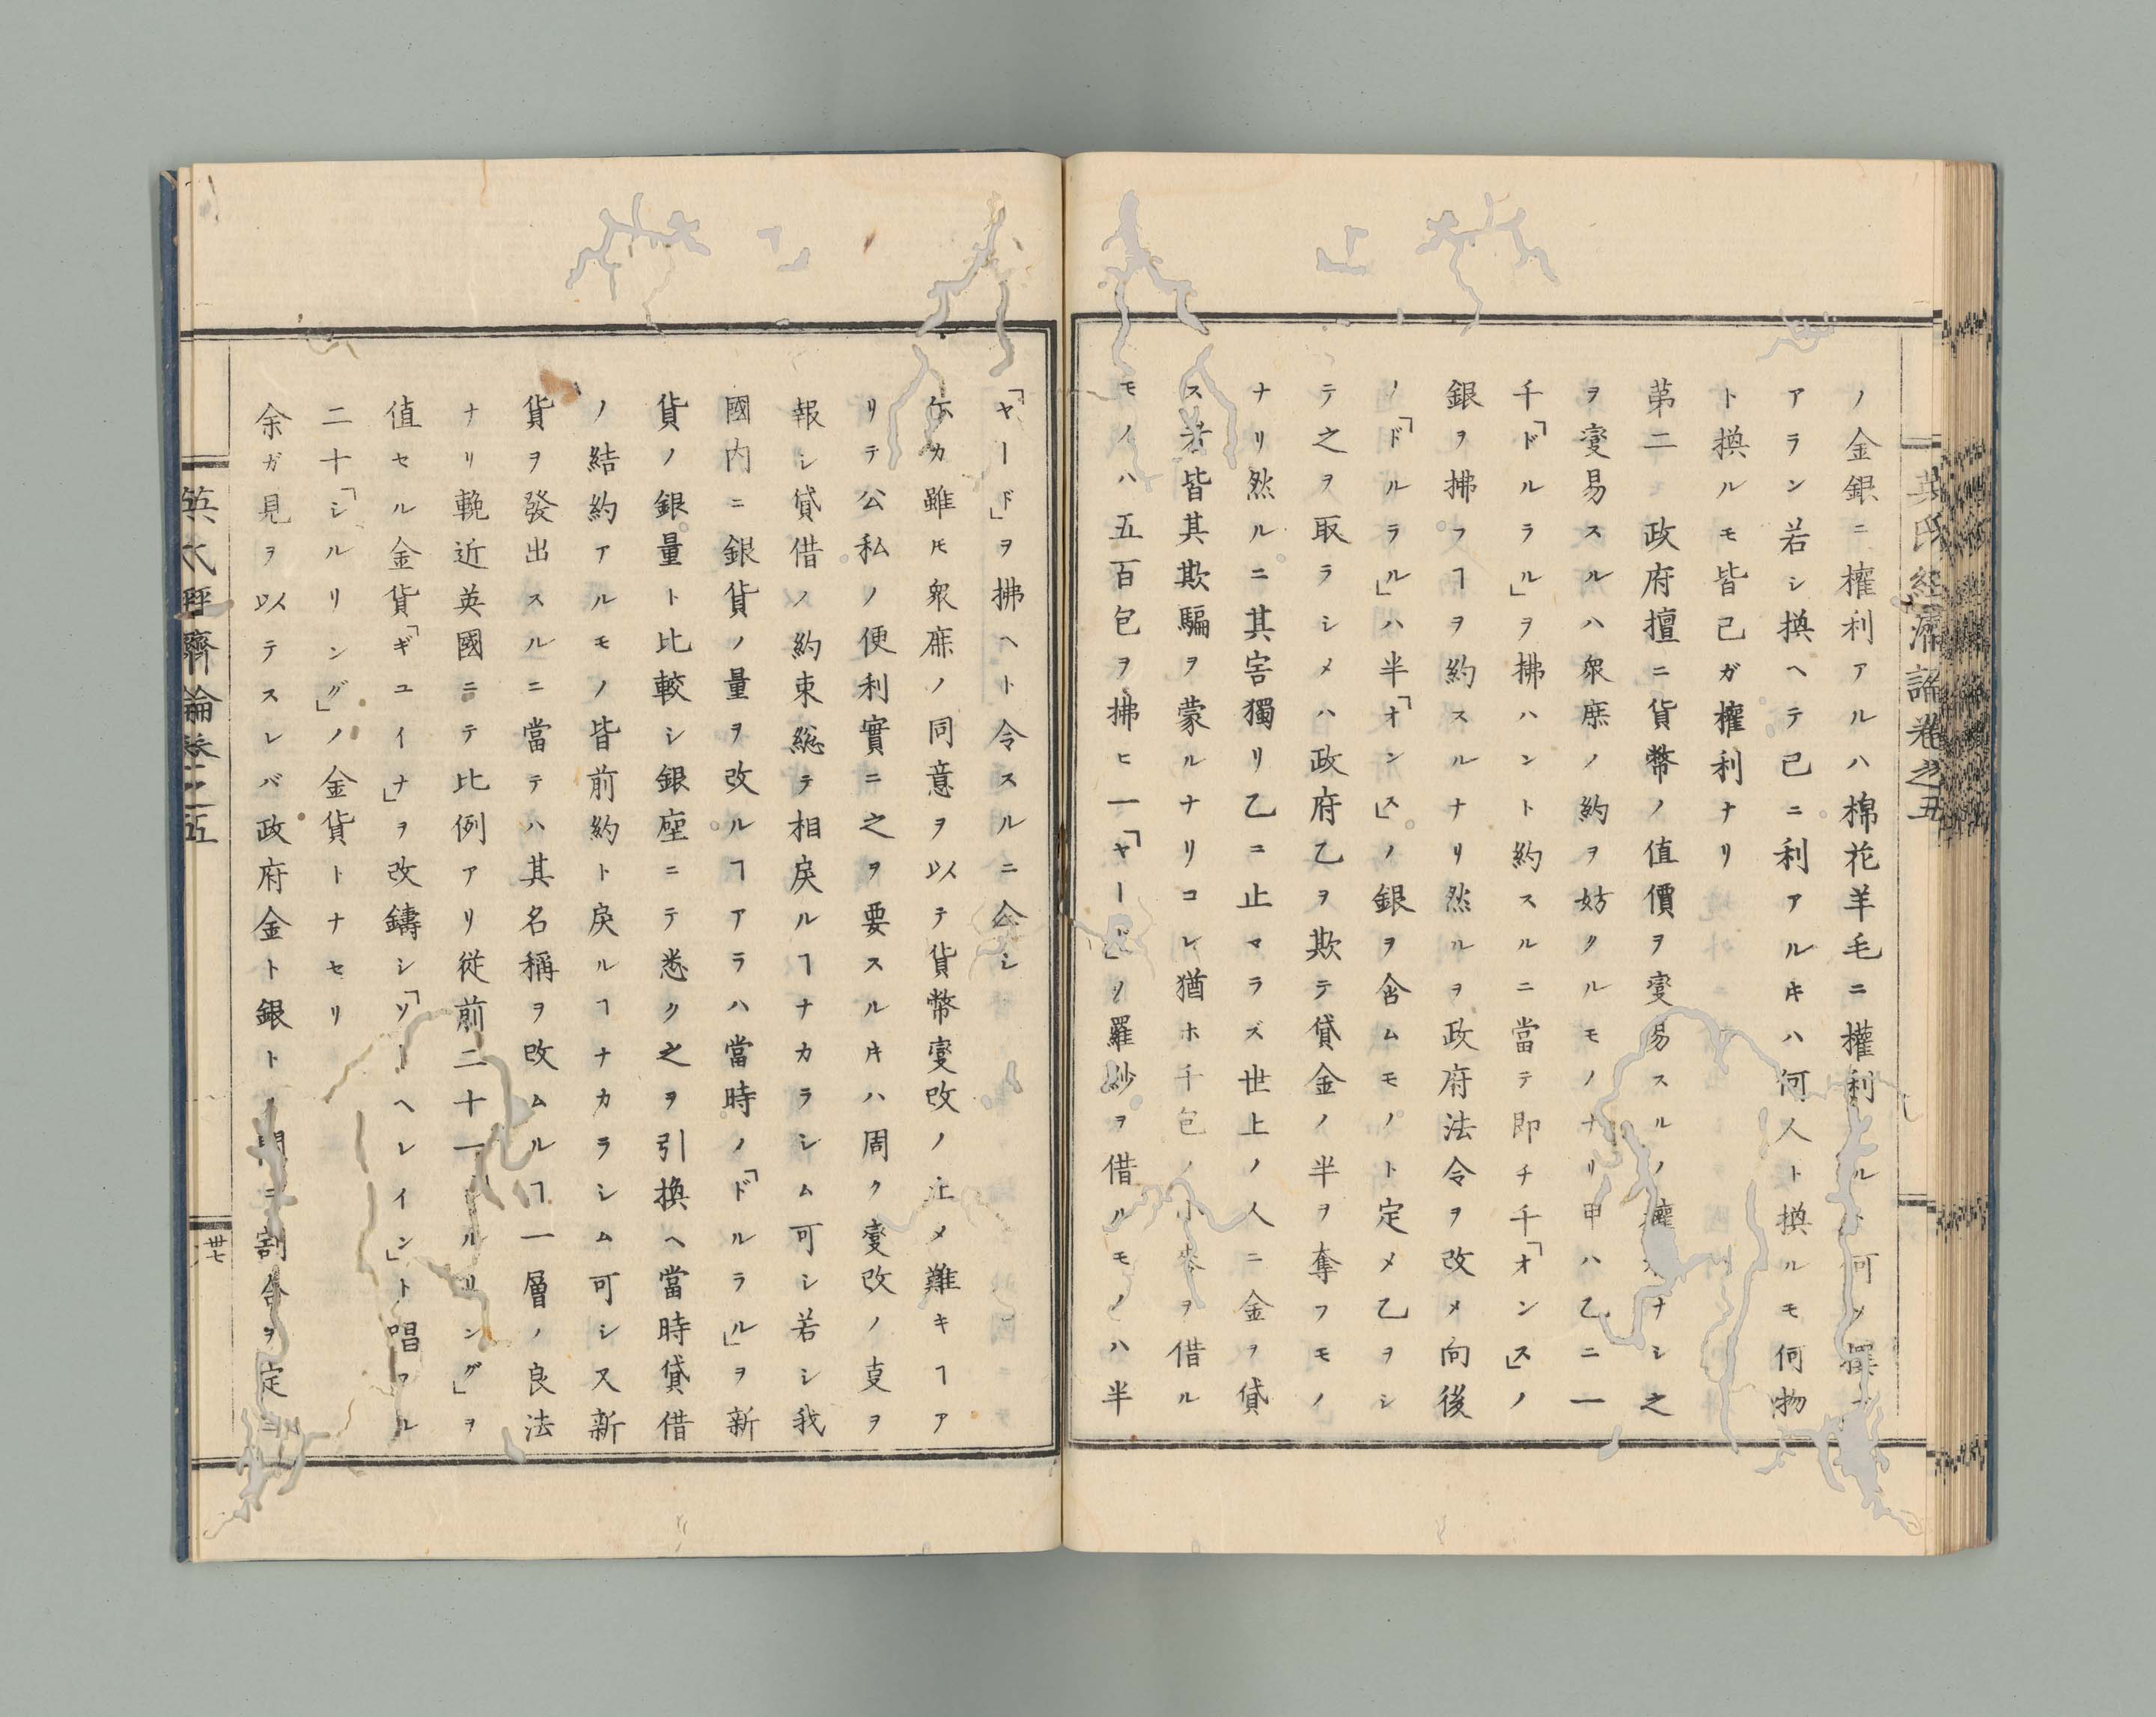 英氏經濟論卷之五
ノ金銀ニ權利アルハ棉花羊毛ニ權利ル何ソ擇
アラン若シ換ヘテ己ニ利アルキハ何人ト換ルモ何物
ト換ルモ皆己ガ權利ナリ
第二 政府擅ニ貨幣ノ値價ヲ變易スルノ權ナシ之
ヲ變易スルハ衆庶ノ約ヲ妨クルモノナリ甲ハ乙ニ一
千「ドルラル」ヲ拂ハント約スルニ當テ即チ千「オンス」ノ
銀ヲ拂フヿヲ約スルナリ然ルヲ政府法令ヲ改メ向後
ノ「ドルラル」ハ半「オンス」ノ銀ヲ含ムモノト定メ乙ヲシ
テ之ヲ取ラシメハ政府乙ヲ欺テ貸金ノ半ヲ奪フモノ
ナリ然ルニ其害獨リ乙ニ止マラズ世上ノ人ニ金ヲ貸
ス者皆其欺騙ヲ蒙ルナリコレ猶ホ千包ノ小麥ヲ借ル
モノハ五百包ヲ拂ヒ一「ヤード」ノ羅紗ヲ借ルモノハ半
「ヤード」ヲ拂ヘト令スルニ仝シ
然カ雖𪜈衆庶ノ同意ヲ以テ貨幣變改ノ止メ難キヿア
リテ公私ノ便利實ニ之ヲ要スルキハ周ク變改ノ㕝ヲ
報シ貸借ノ約束総テ相戻ルヿナカラシム可シ若シ我
國内ニ銀貨ノ量ヲ改ルヿアラハ當時ノ「ドルラル」ヲ新
貨ノ銀量ト比較シ銀座ニテ悉ク之ヲ引換ヘ當時貸借
ノ結約アルモノ皆前約ト戻ルヿナカラシム可シ又新
貨ヲ發出スルニ當テハ其名稱ヲ改ムルヿ一層ノ良法
ナリ輓近英國ニテ比例アリ従前二十一シルリング」ヲ
値セル金貨「ギユイナ」ヲ改鑄シ「ソーヘレイン」ト唱フル
二十「シルリング」ノ金貨トナセリ
余ガ見ヲ以テスレバ政府金ト銀トノ間ニ割合ヲ定ニ
英氏經濟論卷之五
丗七